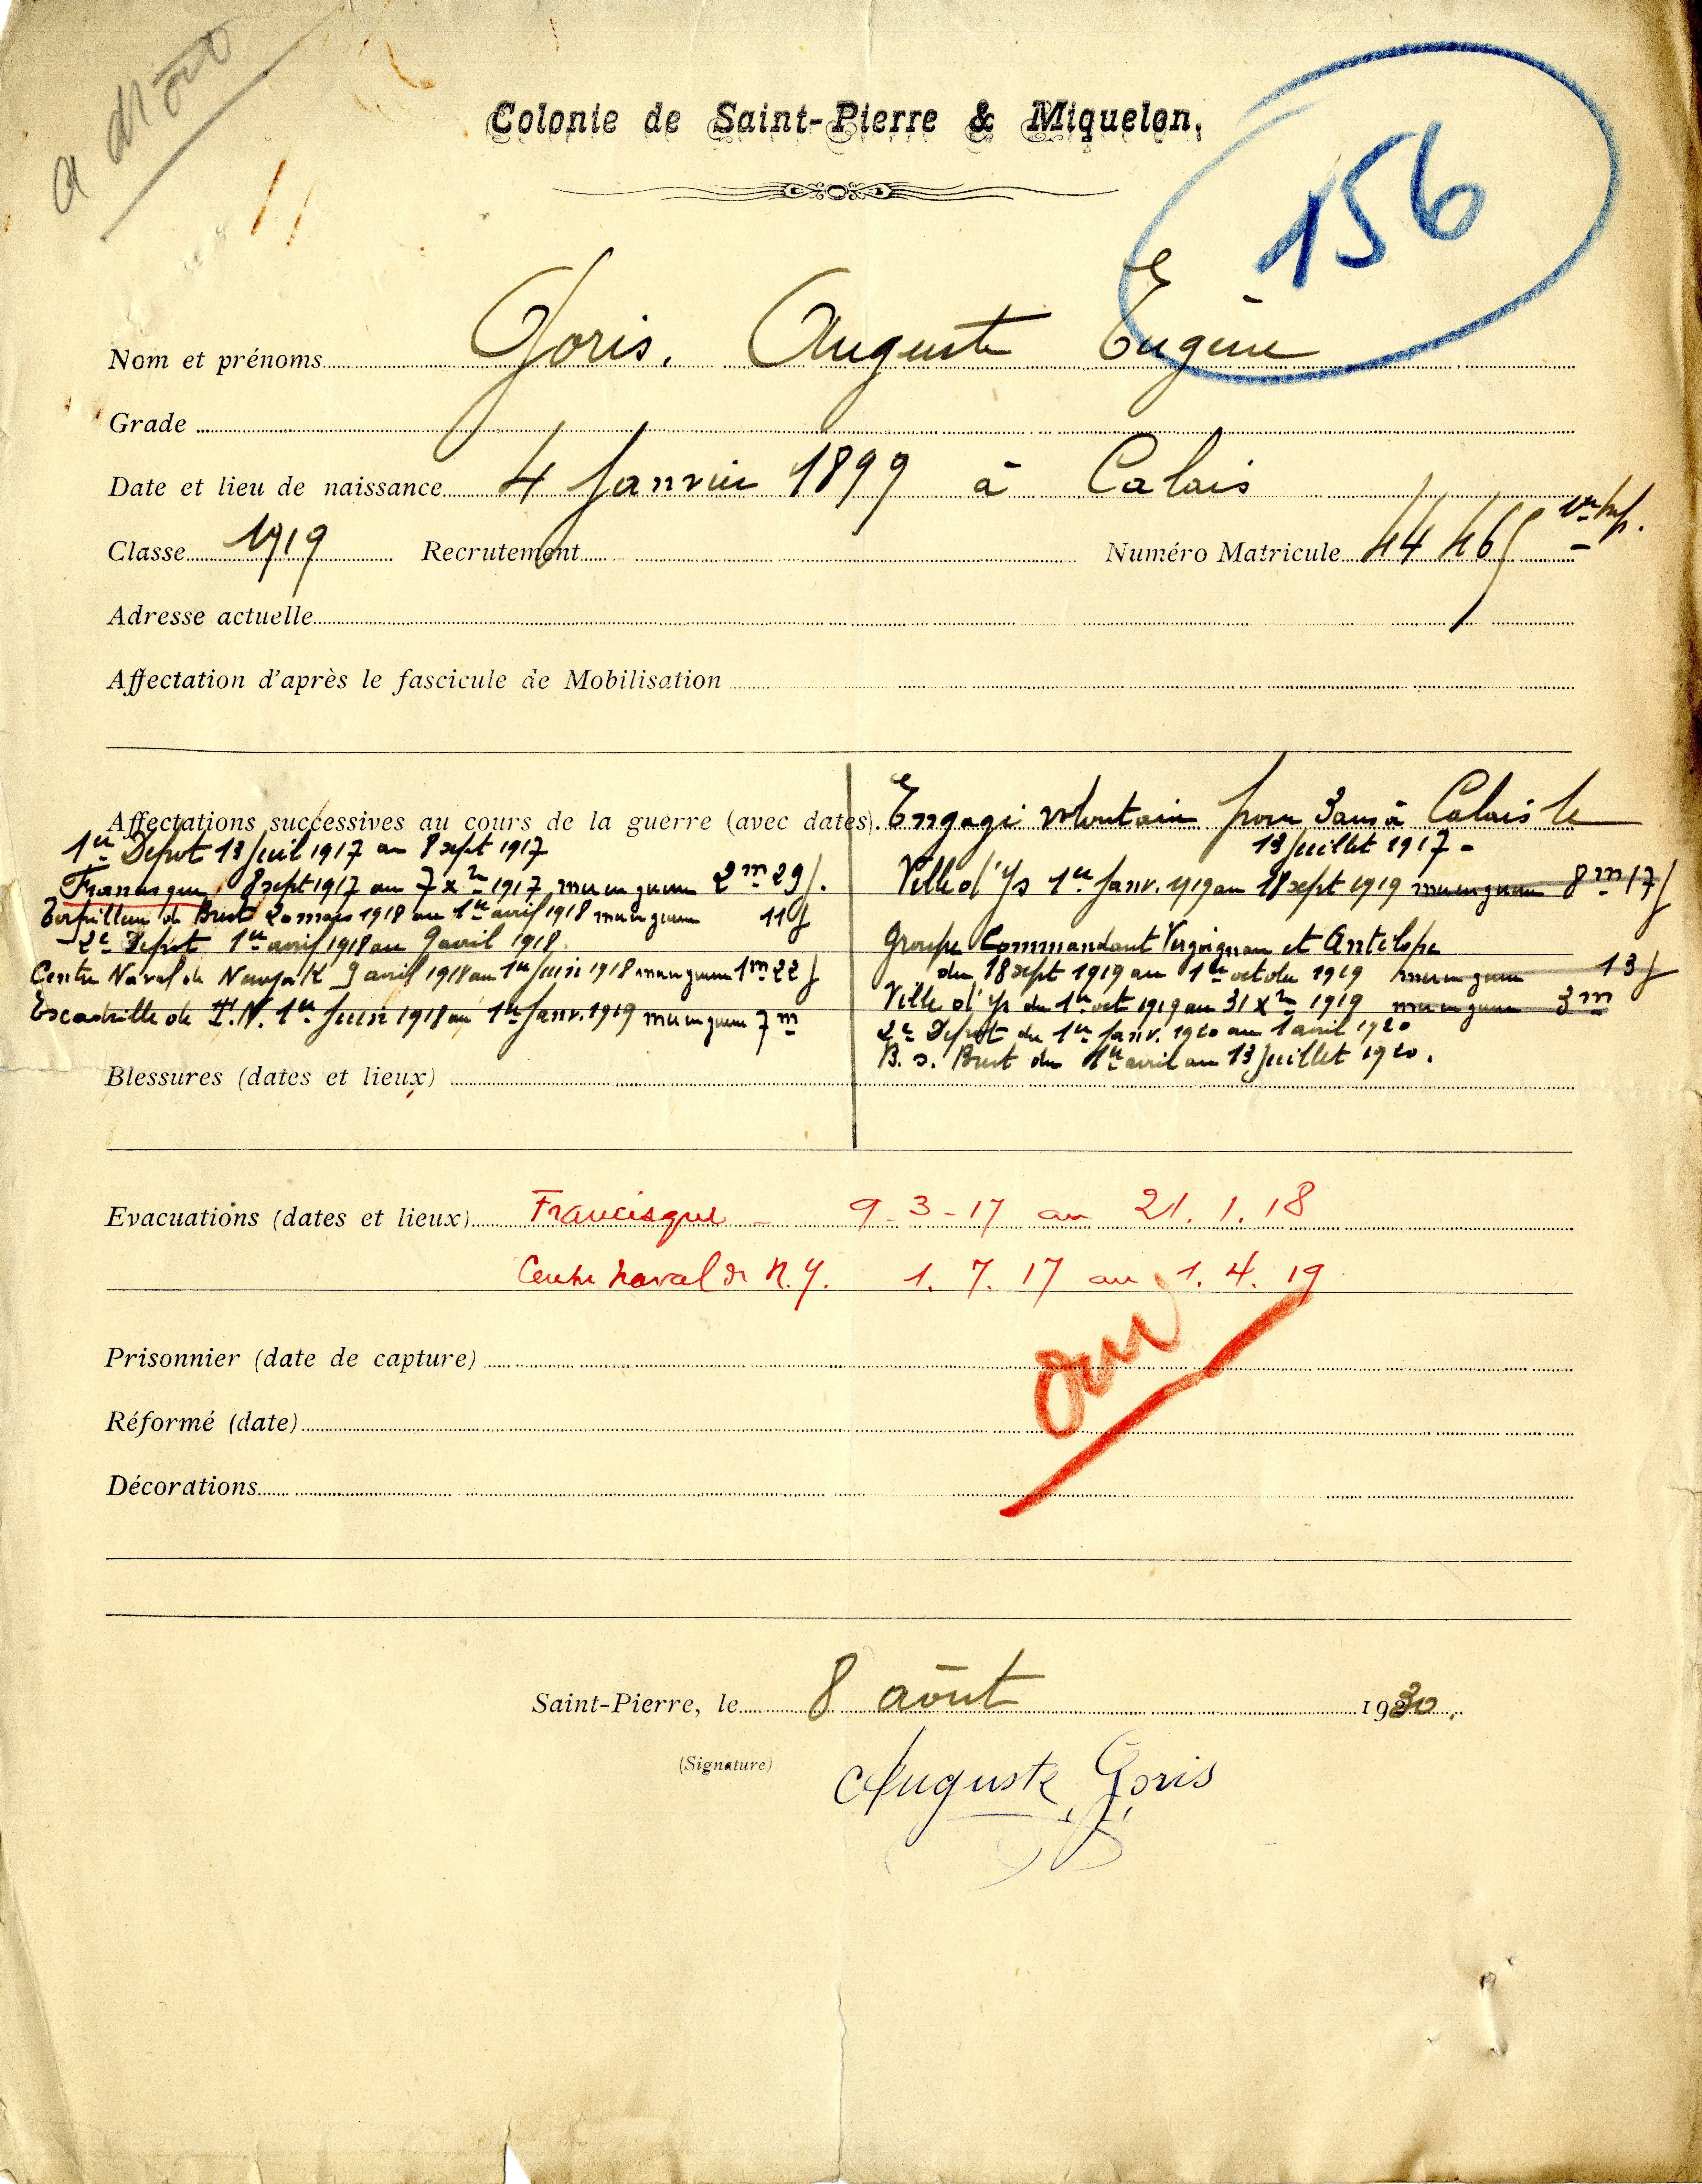 a droit
Colonie de Saint-Pierre & Miquelon.
156
Nom et prénoms Goris. Auguste Eugène
Grade
Date et lieu de naissance 4 Janvier 1899 à Calais
Classe 1919 Recrutement Numéro Matricule 44465
Adresse actuelle
Affectation d'après le fascicule de Mobilisation
Affectations successives au cours de la guerre (avec dates).
1er Depot 13 Juil 1917 au 8 sept 1917
Francisque 8 sept 1917 au 7 Xbre 1917 mer en guerre 2m 29j.
Torpilleur de Brest 20 mars 1918 au 1er avril 1918 mer en guerre 11j
2e Depot 1er avril 1918 au 9 avril 1918
Centre Naval de Newyork 9 avril 1918 au 1er Juin 1918 mer en guerre 1m 22j
Escadrille de T.N. 1er Juin 1918 au 1er Janv. 1919 mer en guerre 7m
Engagé volontaire pour 3 ans à Calais le
13 Juillet 1917 -
Ville d'Ys 1er Janv. 1919 au 18 sept 1919 mer en guerre 8m 17j
Groupe Commandant Vergoignan et Antilope
du 18 sept 1919 au 1er octobre 1919 mer en guerre 13j
Ville d'Ys du 1er oct 1919 au 31 Xbre 1919 mer en guerre 3m
2e Depot du 1er Janv. 1920 au 1 avril 1920
B. s. Brest du 1er avril au 13 Juillet 1920.
Blessures (dates et lieux)
Evacuations (dates et lieux) Francisque - 9-3-17 au 21.1.18
Centre naval de N.Y. 1.7.17 au 1.4.19
oui
Prisonnier (date de capture)
Réformé (date)
Décorations
Saint-Pierre, le 8 août 1930.
(Signature) Auguste Goris